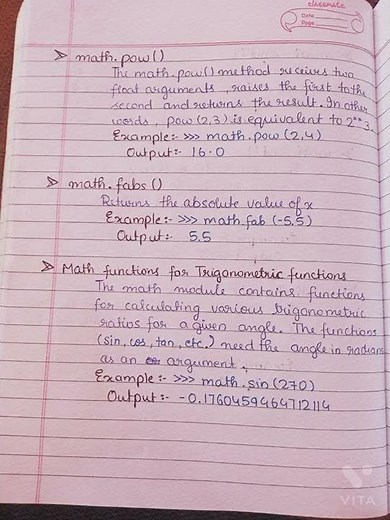 classmate
Date
Page
➢ math.pow()
The math.pow() method receives two
float arguments, raises the first to the
second and returns the result. In other
words, pow(2,3) is equivalent to 2**3.
Example:- >>> math.pow(2,4)
Output:- 16.0
➢ math.fabs()
Returns the absolute value of x
Example:- >>> math.fab(-5.5)
Output:- 5.5
➢ Math functions for Trigonometric functions
The math module contains functions
for calculating various trigonometric
ratios for a given angle. The functions
(sin, cos, tan, etc.) need the angle in radians
as an argument.
Example:- >>> math.sin(270)
Output:- -0.1760459464712114
VITA